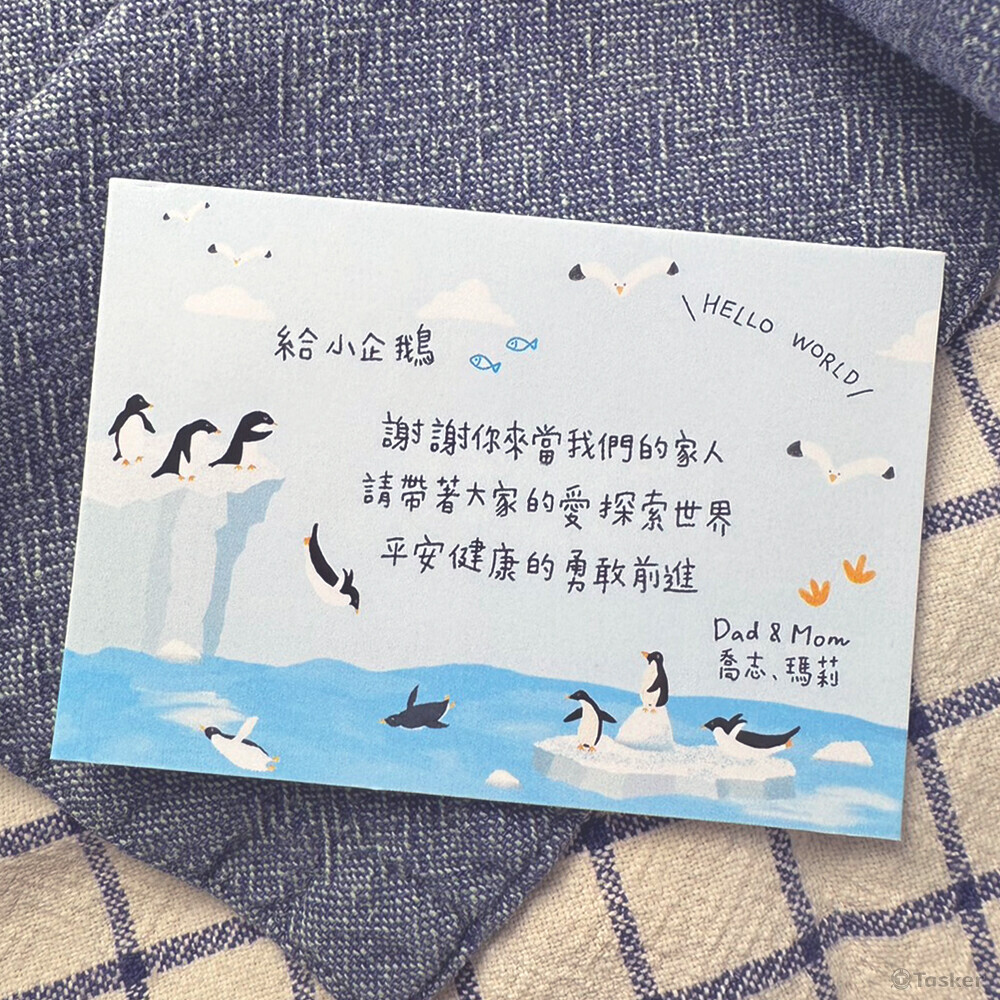 HELLO WORLD
給小企鵝
謝謝你來當我們的家人
請帶著大家的愛探索世界
平安健康的勇敢前進
Dad & Mom
喬志、瑪莉
Tasker